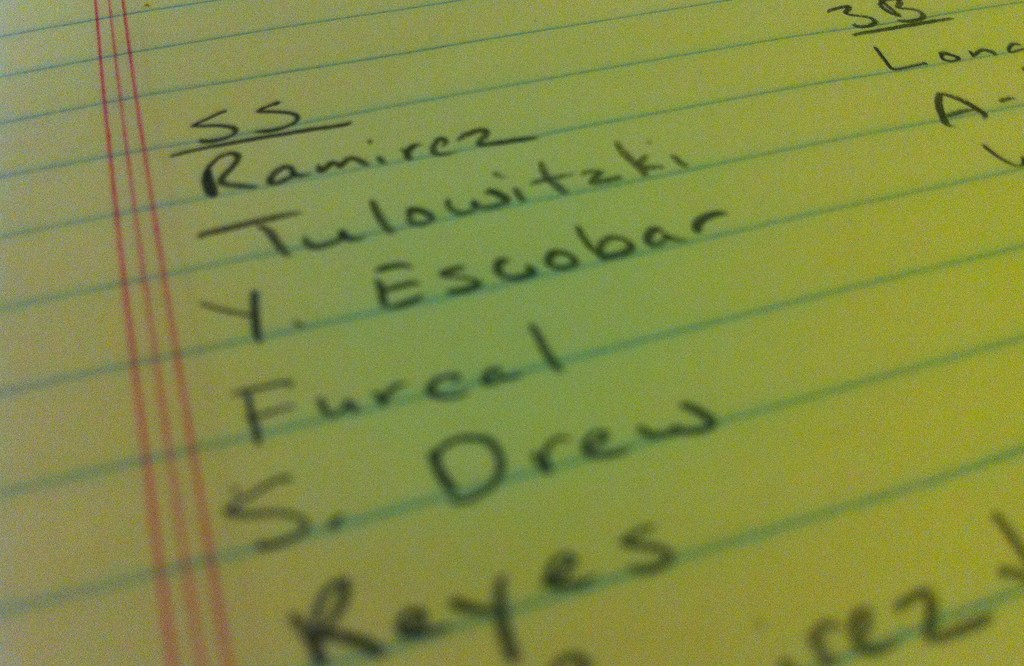 SS
Ramirez
Tulowitzki
Y. Escobar
Furcal
S. Drew
Reyes
3B
Long
A-